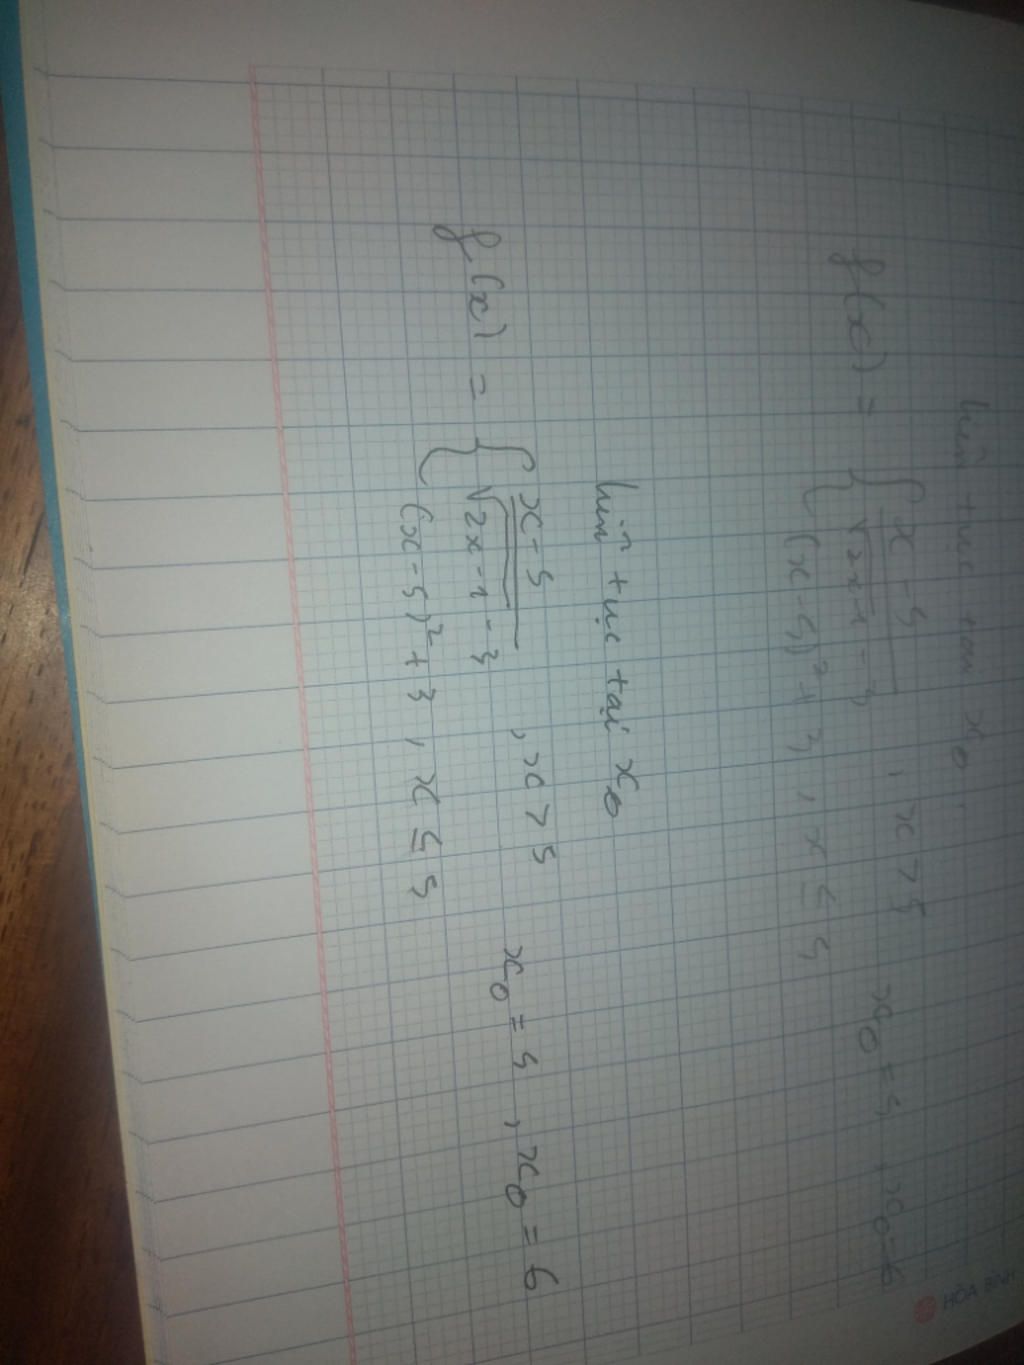 liên tục tại x₀
f(x) = { (x-5)/(√(2x-1) - 3) , x > 5
(x-5)² + 3 , x ≤ 5
x₀ = 5 , x₀ = 6
liên tục tại x₀
f(x) = { (x-5)/(√(2x-1) - 3) , x > 5
(x-5)² + 3 , x ≤ 5
x₀ = 5 , x₀ = 6
HÒA BÌNH